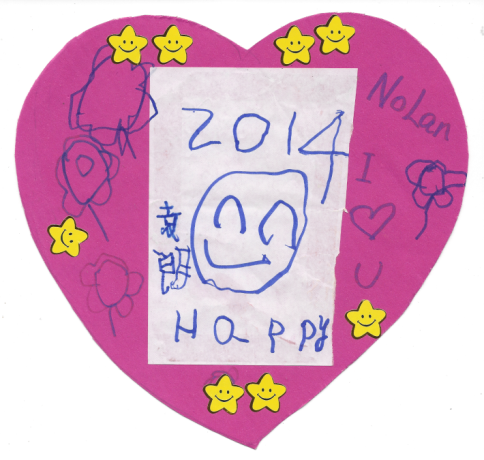 2014
HAPPY
Nolan
I
♡
U